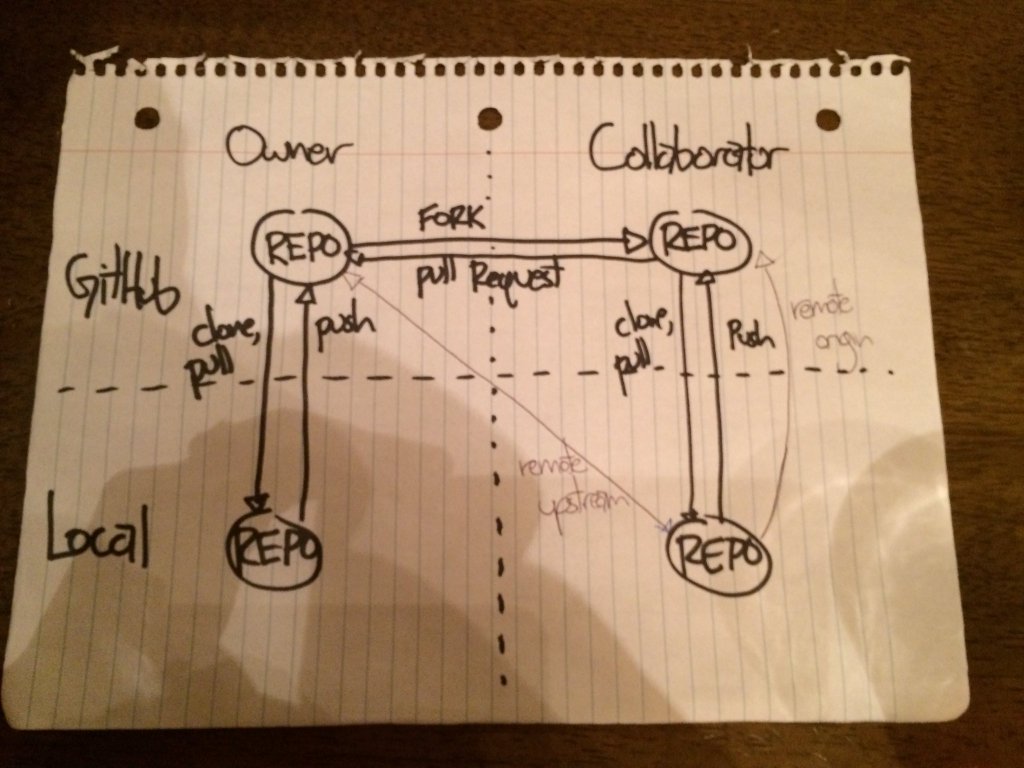 Owner
Collaborator
FORK
REPO
REPO
pull Request
GitHub
clone,
pull
push
clone,
pull
Push
remote
origin
remote
upstream
Local
REPO
REPO